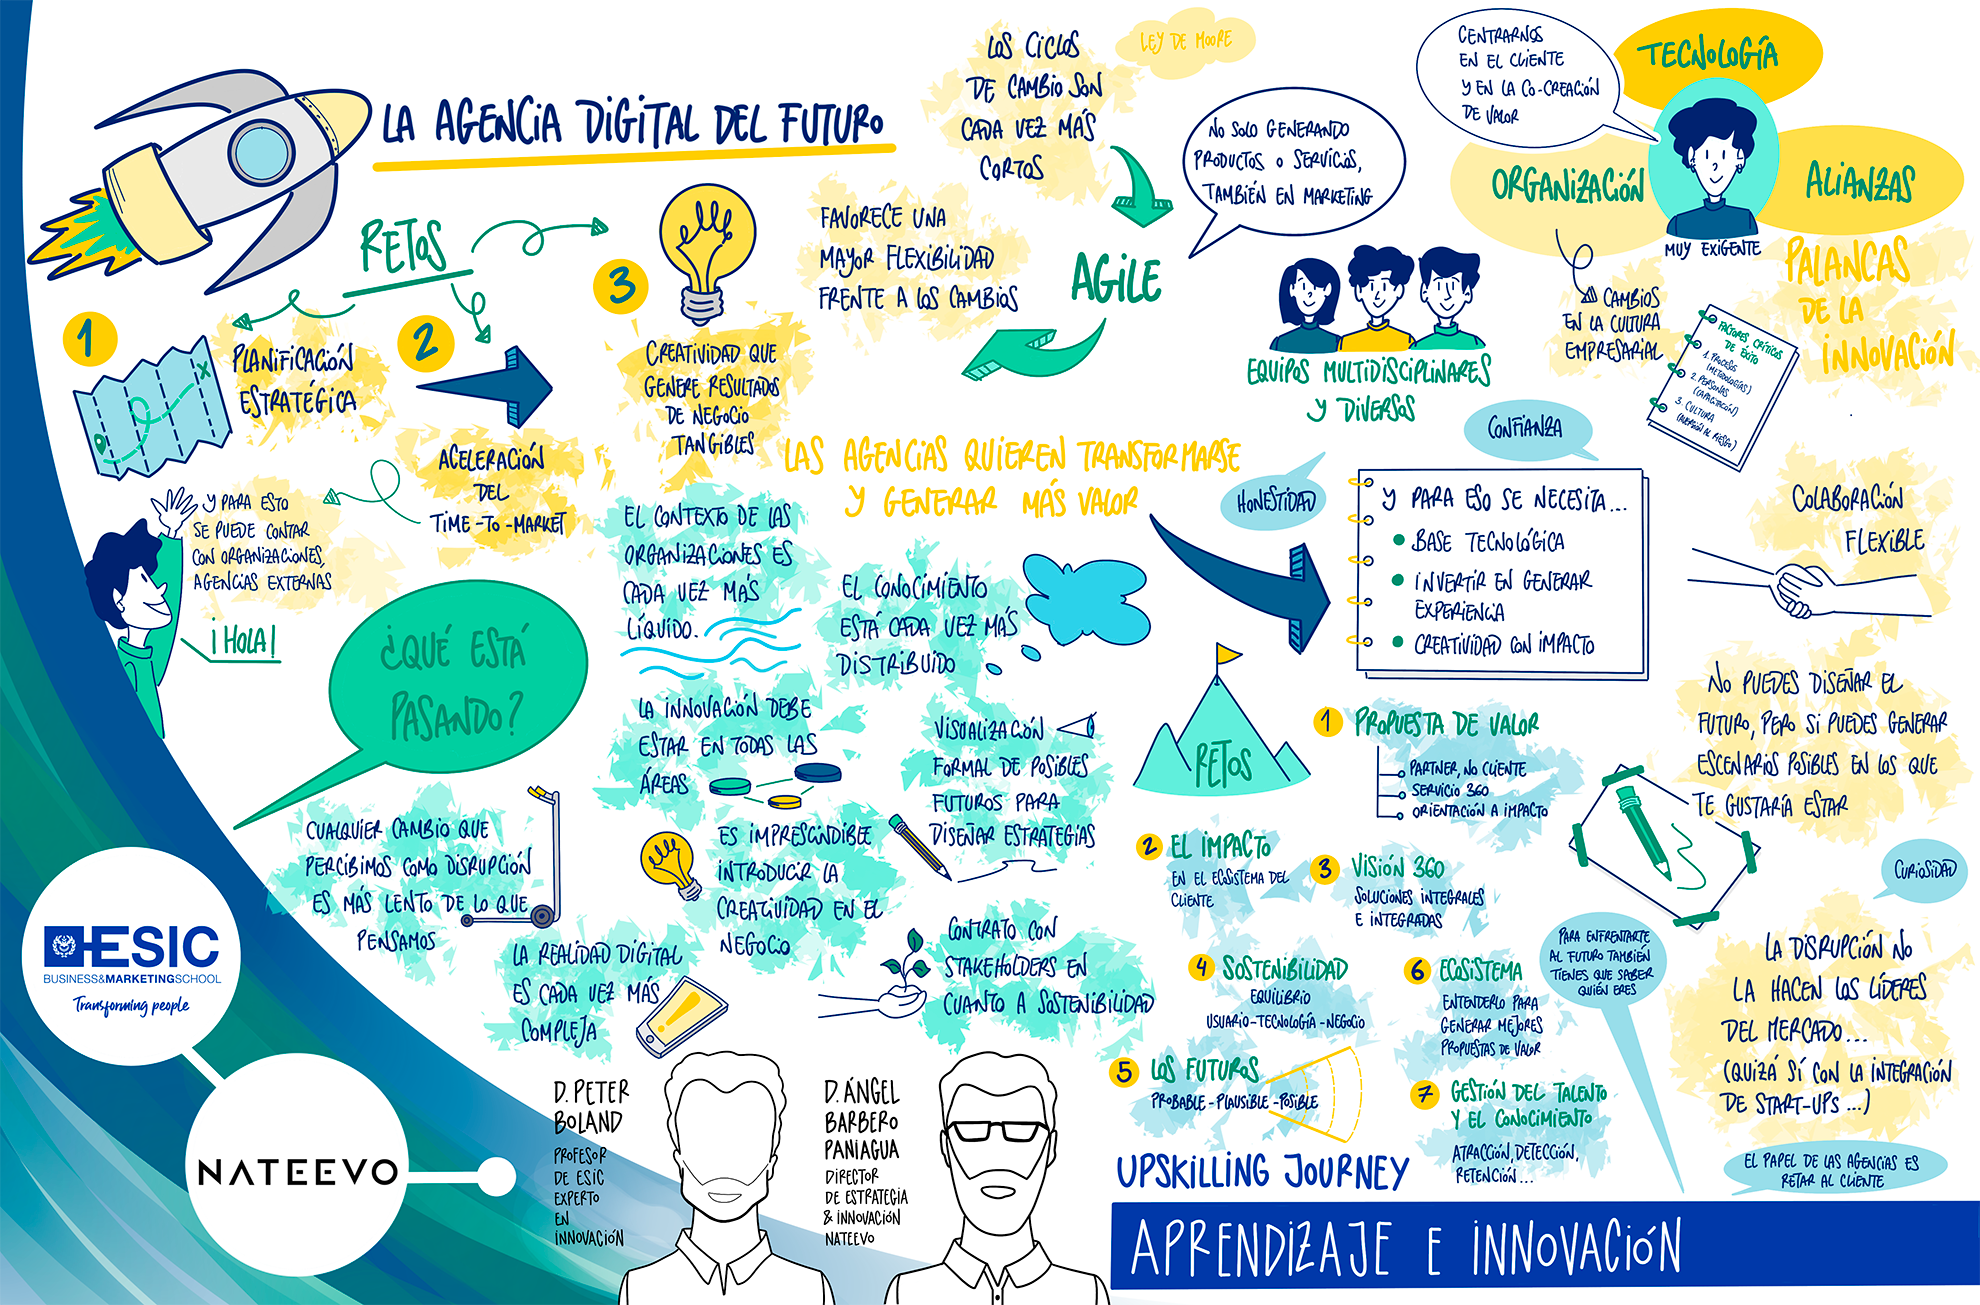 LA AGENCIA DIGITAL DEL FUTURO
RETOS
1
PLANIFICACIÓN
ESTRATÉGICA
2
ACELERACIÓN
DEL
TIME-TO-MARKET
3
CREATIVIDAD QUE
GENERE RESULTADOS
DE NEGOCIO
TANGIBLES
Y PARA ESTO
SE PUEDE CONTAR
CON ORGANIZACIONES,
AGENCIAS EXTERNAS
¡HOLA!
LOS CICLOS
DE CAMBIO SON
CADA VEZ MÁS
CORTOS
LEY DE MOORE
FAVORECE UNA
MAYOR FLEXIBILIDAD
FRENTE A LOS CAMBIOS
AGILE
NO SOLO GENERANDO
PRODUCTOS O SERVICIOS,
TAMBIÉN EN MARKETING
EQUIPOS MULTIDISCIPLINARES
Y DIVERSOS
CENTRARNOS
EN EL CLIENTE
Y EN LA CO-CREACIÓN
DE VALOR
TECNOLOGÍA
ORGANIZACIÓN
ALIANZAS
MUY EXIGENTE
PALANCAS
DE LA
INNOVACIÓN
CAMBIOS
EN LA CULTURA
EMPRESARIAL
FACTORES CRÍTICOS
DE ÉXITO
1. PROCESOS
(METODOLOGÍAS)
2. PERSONAS
(CAPACITACIÓN)
3. CULTURA
(AVERSIÓN AL RIESGO)
LAS AGENCIAS QUIEREN TRANSFORMARSE
Y GENERAR MÁS VALOR
HONESTIDAD
CONFIANZA
Y PARA ESO SE NECESITA...
BASE TECNOLÓGICA
INVERTIR EN GENERAR
EXPERIENCIA
CREATIVIDAD CON IMPACTO
COLABORACIÓN
FLEXIBLE
¿QUÉ ESTÁ
PASANDO?
CUALQUIER CAMBIO QUE
PERCIBIMOS COMO DISRUPCIÓN
ES MÁS LENTO DE LO QUE
PENSAMOS
EL CONTEXTO DE LAS
ORGANIZACIONES ES
CADA VEZ MÁS
LÍQUIDO.
EL CONOCIMIENTO
ESTÁ CADA VEZ MÁS
DISTRIBUIDO
LA INNOVACIÓN DEBE
ESTAR EN TODAS LAS
ÁREAS
VISUALIZACIÓN
FORMAL DE POSIBLES
FUTUROS PARA
DISEÑAR ESTRATEGIAS
ES IMPRESCINDIBLE
INTRODUCIR LA
CREATIVIDAD EN EL
NEGOCIO
LA REALIDAD DIGITAL
ES CADA VEZ MÁS
COMPLEJA
!
CONTRATO CON
STAKEHOLDERS EN
CUANTO A SOSTENIBILIDAD
RETOS
1 PROPUESTA DE VALOR
PARTNER, NO CLIENTE
SERVICIO 360
ORIENTACIÓN A IMPACTO
2 EL IMPACTO
EN EL ECOSISTEMA DEL
CLIENTE
3 VISIÓN 360
SOLUCIONES INTEGRALES
E INTEGRADAS
4 SOSTENIBILIDAD
EQUILIBRIO
USUARIO-TECNOLOGÍA-NEGOCIO
5 LOS FUTUROS
PROBABLE-PLAUSIBLE-POSIBLE
6 ECOSISTEMA
ENTENDERLO PARA
GENERAR MEJORES
PROPUESTAS DE VALOR
7 GESTIÓN DEL TALENTO
Y EL CONOCIMIENTO
ATRACCIÓN, DETECCIÓN,
RETENCIÓN...
NO PUEDES DISEÑAR EL
FUTURO, PERO SI PUEDES GENERAR
ESCENARIOS POSIBLES EN LOS QUE
TE GUSTARÍA ESTAR
CURIOSIDAD
PARA ENFRENTARTE
AL FUTURO TAMBIÉN
TIENES QUE SABER
QUIÉN ERES
LA DISRUPCIÓN NO
LA HACEN LOS LÍDERES
DEL MERCADO...
(QUIZÁ SÍ CON LA INTEGRACIÓN
DE START-UPS...)
EL PAPEL DE LAS AGENCIAS ES
RETAR AL CLIENTE
ESIC
BUSINESS&MARKETINGSCHOOL
Transforming people
NATEEVO
D. PETER
BOLAND
PROFESOR
DE ESIC
EXPERTO
EN
INNOVACIÓN
D. ÁNGEL
BARBERO
PANIAGUA
DIRECTOR
DE ESTRATEGIA
& INNOVACIÓN
NATEEVO
UPSKILLING JOURNEY
APRENDIZAJE E INNOVACIÓN